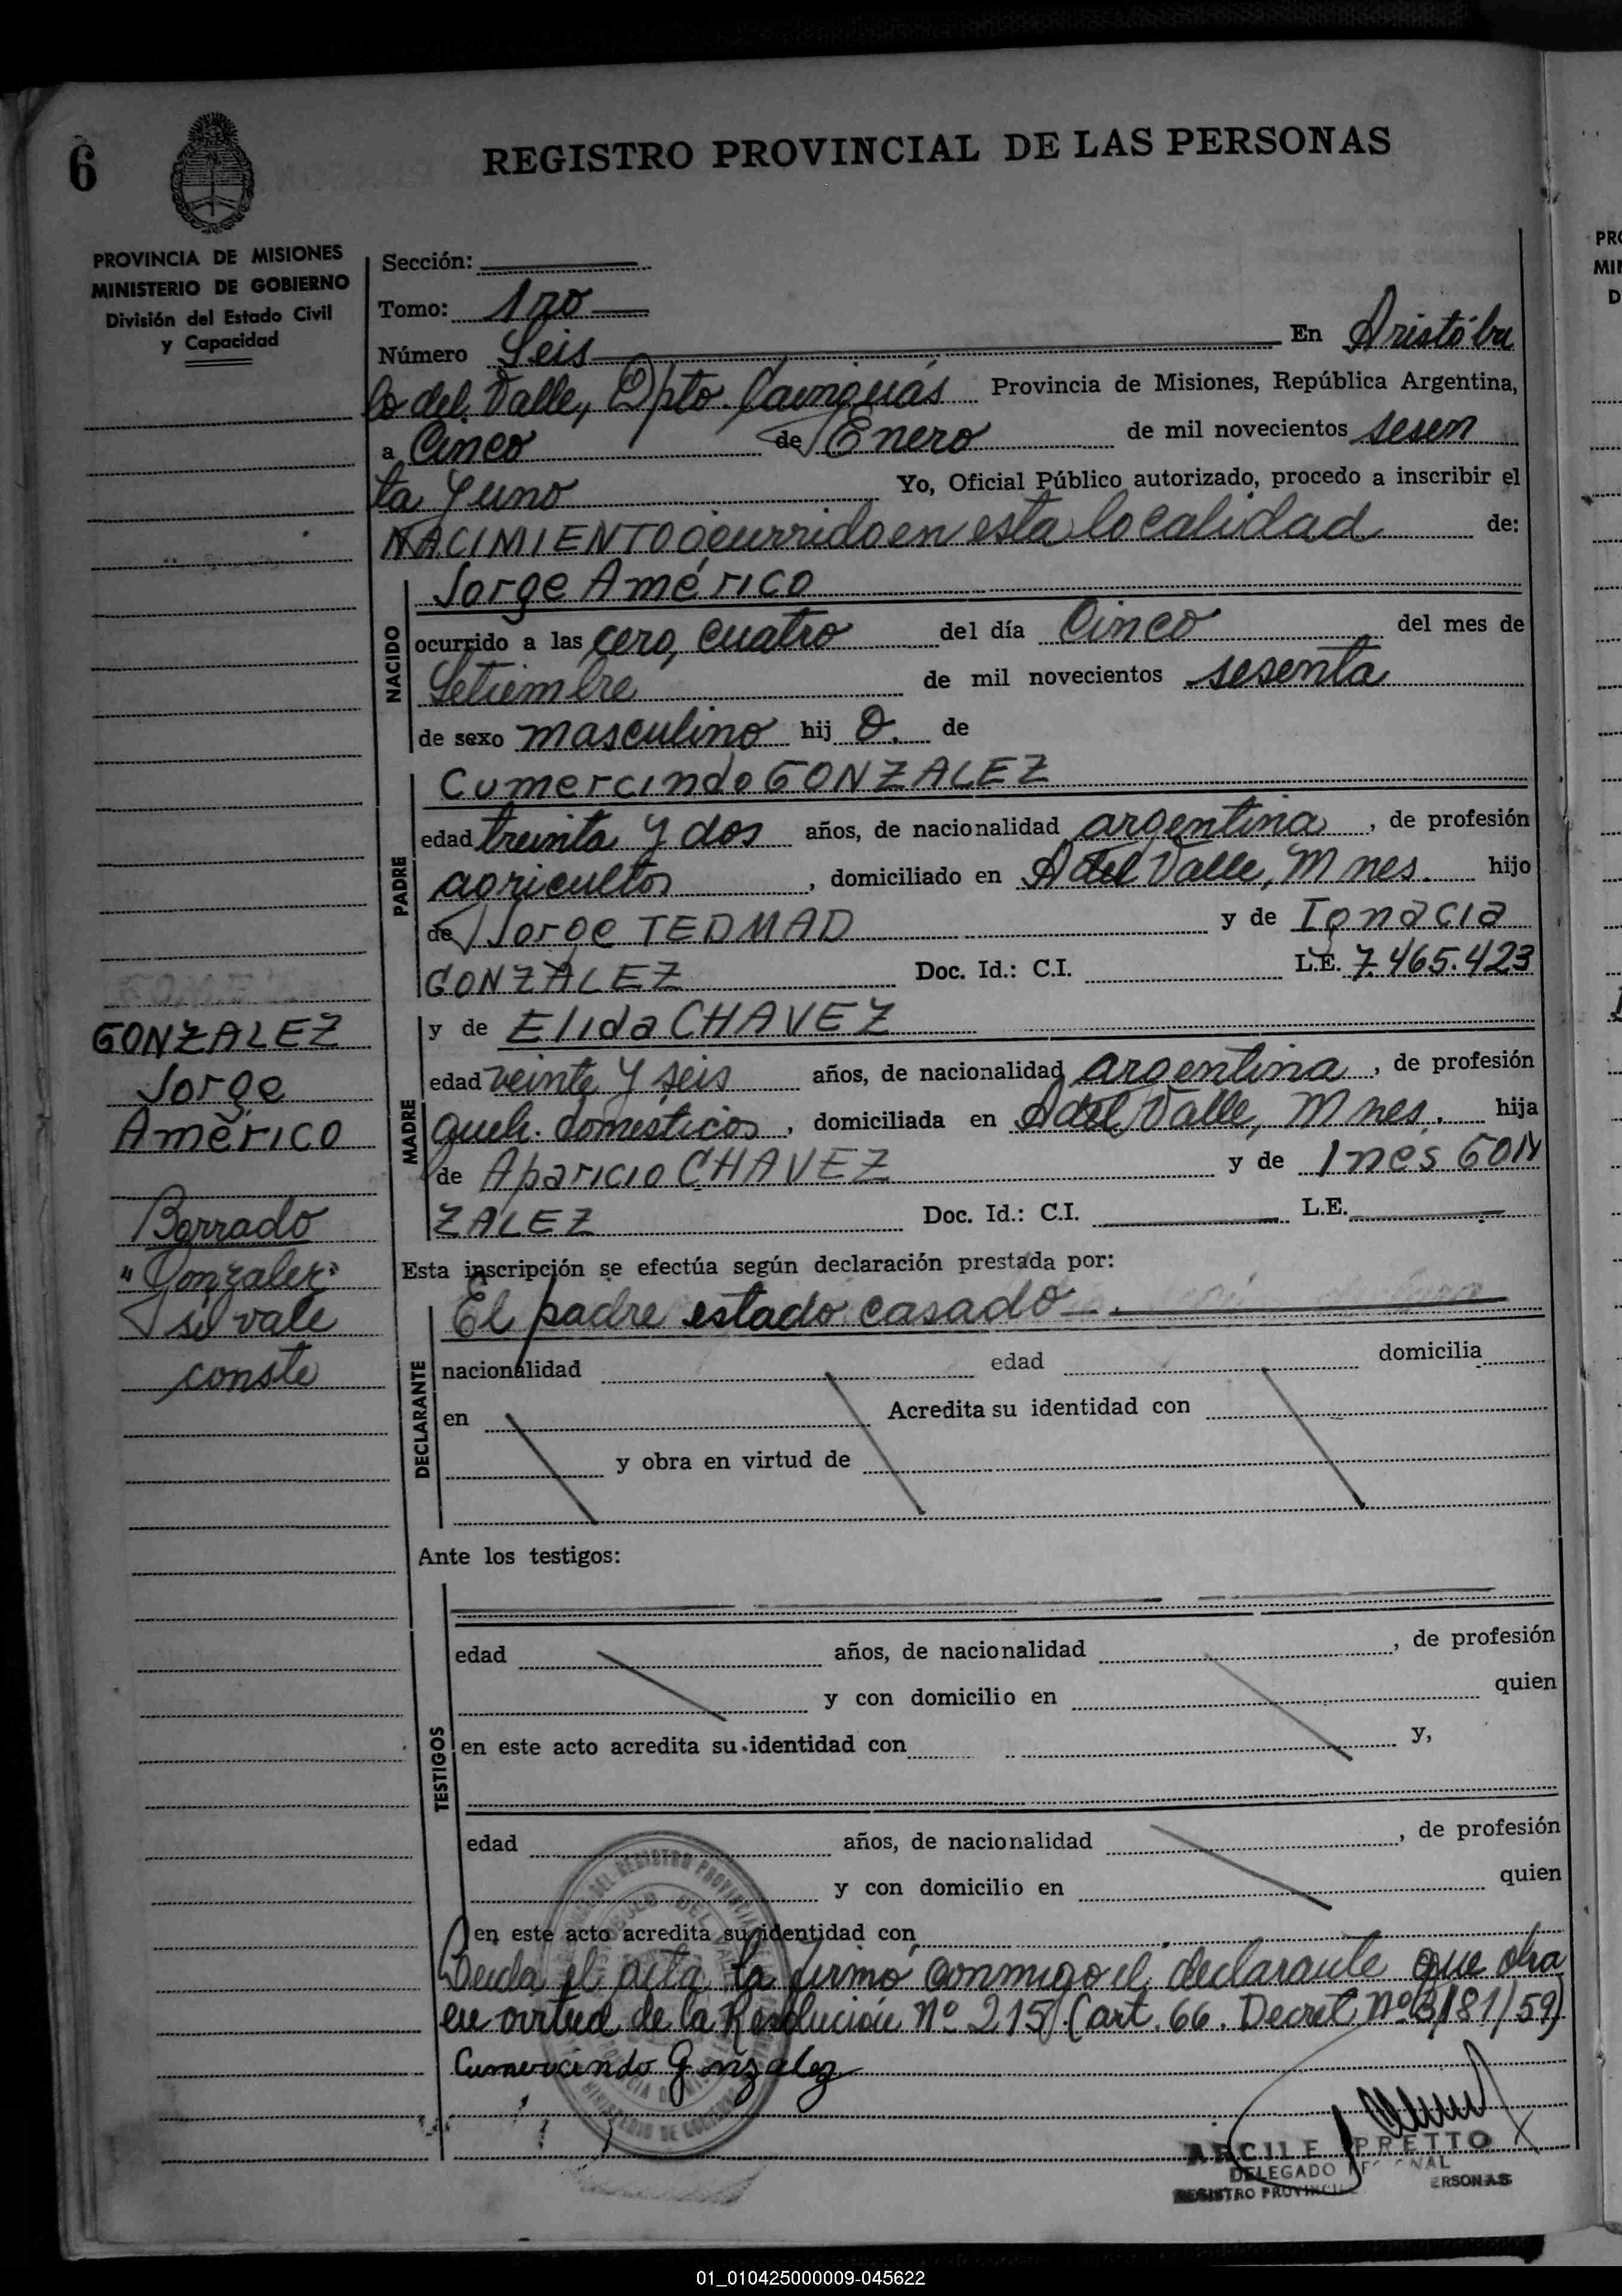 6
REGISTRO PROVINCIAL DE LAS PERSONAS
PROVINCIA DE MISIONES
MINISTERIO DE GOBIERNO
División del Estado Civil
y Capacidad
Sección:
Tomo: 1ro
Número Seis En Aristóbu
lo del Valle, Dpto. Cainguás Provincia de Misiones, República Argentina,
a Cinco de Enero de mil novecientos sesen
ta y uno Yo, Oficial Público autorizado, procedo a inscribir el
NACIMIENTO ocurrido en esta localidad de:
NACIDO
Jorge Américo
ocurrido a las cero, cuatro del día Cinco del mes de
Setiembre de mil novecientos sesenta
de sexo masculino hij o. de
PADRE
Cumercindo GONZALEZ
edad treinta y dos años, de nacionalidad argentina, de profesión
agricultor, domiciliado en A del Valle, Mnes. hijo
de Jorge TEDMAD y de Ignacia
GONZALEZ Doc. Id.: C.I. L.E. 7.465.423
MADRE
y de Elida CHAVEZ
edad veinte y seis años, de nacionalidad argentina, de profesión
queh. domésticos, domiciliada en A del Valle, Mnes. hija
de Aparicio CHAVEZ y de Inés GON
ZALEZ Doc. Id.: C.I. L.E.
GONZALEZ
Jorge
Américo
Borrado
"Gonzalez"
si vale
conste
Esta inscripción se efectúa según declaración prestada por:
DECLARANTE
El padre estado casado
nacionalidad edad domicilia
en Acredita su identidad con
y obra en virtud de
Ante los testigos:
TESTIGOS
edad años, de nacionalidad, de profesión
y con domicilio en quien
en este acto acredita su identidad con y,
edad años, de nacionalidad, de profesión
y con domicilio en quien
en este acto acredita su identidad con
Leida el acta la firmó conmigo el declarante que obra
en virtud de la Resolución Nº 215 (art. 66. Decret Nº 3181/59)
Cumercindo Gonzalez
ARCILE PRETTO
DELEGADO
REGISTRO
01_010425000009-045622